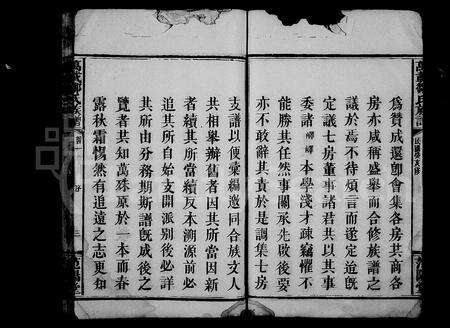 為贊成選卽會集各房共商各
房亦咸稱盛舉而合修族譜之
議於焉不待煩言而遂定迨旣
定議七房董事諸君共以其事
委諸柳柳本學淺才疎竊懼不
能勝其任然事關承先啟後要
亦不敢辭其責於是調集七房
支譜以便彙編邀同合族文人
共相舉辦舊者因其所當因新
者續其所當續反本溯源前必
追其所自始支開派別後必詳
其所由分務期斯譜旣成後之
覽者共知萬殊原於一本而春
露秋霜惕然有追遠之志更知